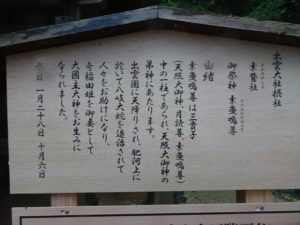 出雲大社摂社
素鵞社
御祭神 素戔嗚尊
由緒
素戔嗚尊は三貴子
(天照大御神、月読尊、素戔嗚尊)
中の一柱であられ天照大御神の
弟神にあたります。
出雲国に天降りされ、肥河上に
於いて八岐大蛇を退治されて
人々をお助けになり、
奇稲田姫を御妻として
大國主大神をお生みに
なられました。
祭日 一月二十八日 十月六日